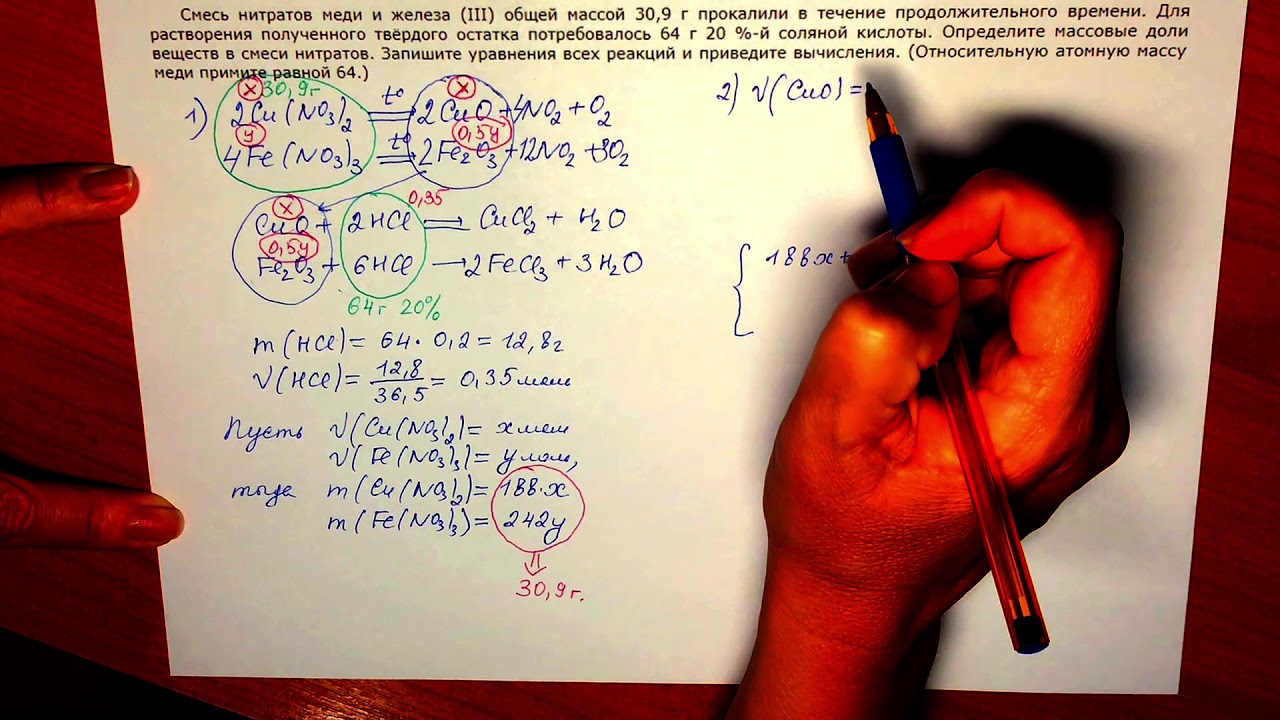 Смесь нитратов меди и железа (III) общей массой 30,9 г прокалили в течение продолжительного времени. Для
растворения полученного твёрдого остатка потребовалось 64 г 20 %-й соляной кислоты. Определите массовые доли
веществ в смеси нитратов. Запишите уравнения всех реакций и приведите вычисления. (Относительную атомную массу
меди примите равной 64.)
x 30,9г x
1) 2Cu(NO₃)₂ =t°= 2CuO + 4NO₂ + O₂
y 0,5y
4Fe(NO₃)₃ =t°= 2Fe₂O₃ + 12NO₂ + 3O₂
x 0,35
CuO + 2HCl = CuCl₂ + H₂O
0,5y
Fe₂O₃ + 6HCl → 2FeCl₃ + 3H₂O
64г 20%
m(HCl) = 64 · 0,2 = 12,8г
ν(HCl) = 12,8/36,5 = 0,35моль
Пусть ν(Cu(NO₃)₂) = x моль
ν(Fe(NO₃)₃) = y моль,
тогда m(Cu(NO₃)₂) = 188·x
m(Fe(NO₃)₃) = 242y
⇓
30,9г.
2) ν(CuO) =
{ 188x +